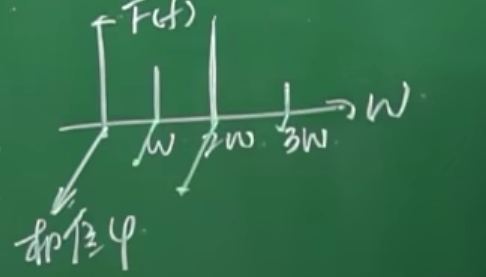 F(f)
W
w 2w 3w
相位φ